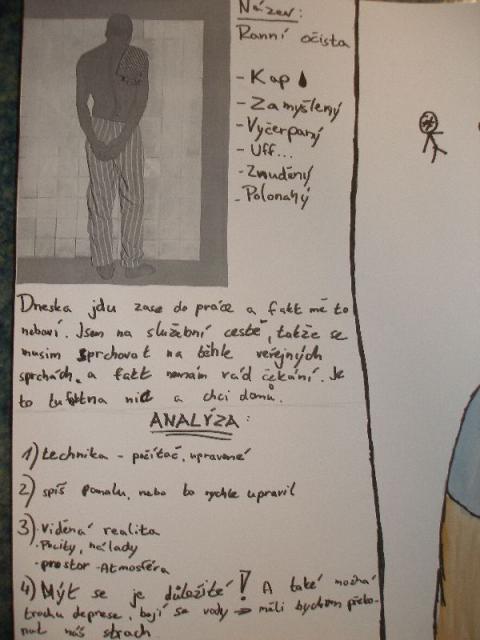 Název:
Ranní očista
- Kap
- Zamyšlený
- Vyčerpaný
- Uff...
- Znuděný
- Polonahý
Dneska jdu zase do práce a fakt mě to
nebaví. Jsem na služební cestě, takže se
musím sprchovat na těhle veřejných
sprchách, a fakt nemám rád čekání. Je
to tu na nic a chci domů.
ANALÝZA:
1) technika - počítač, upravené
2) spíš pomalu, nebo to rychle upravil
3) - Viděná realita
- Pocity, nálady
- prostor - Atmosféra
4) Mýt se je důležité! A také možná
trochu deprese, bojí se vody → měli bychom překo-
nat náš strach